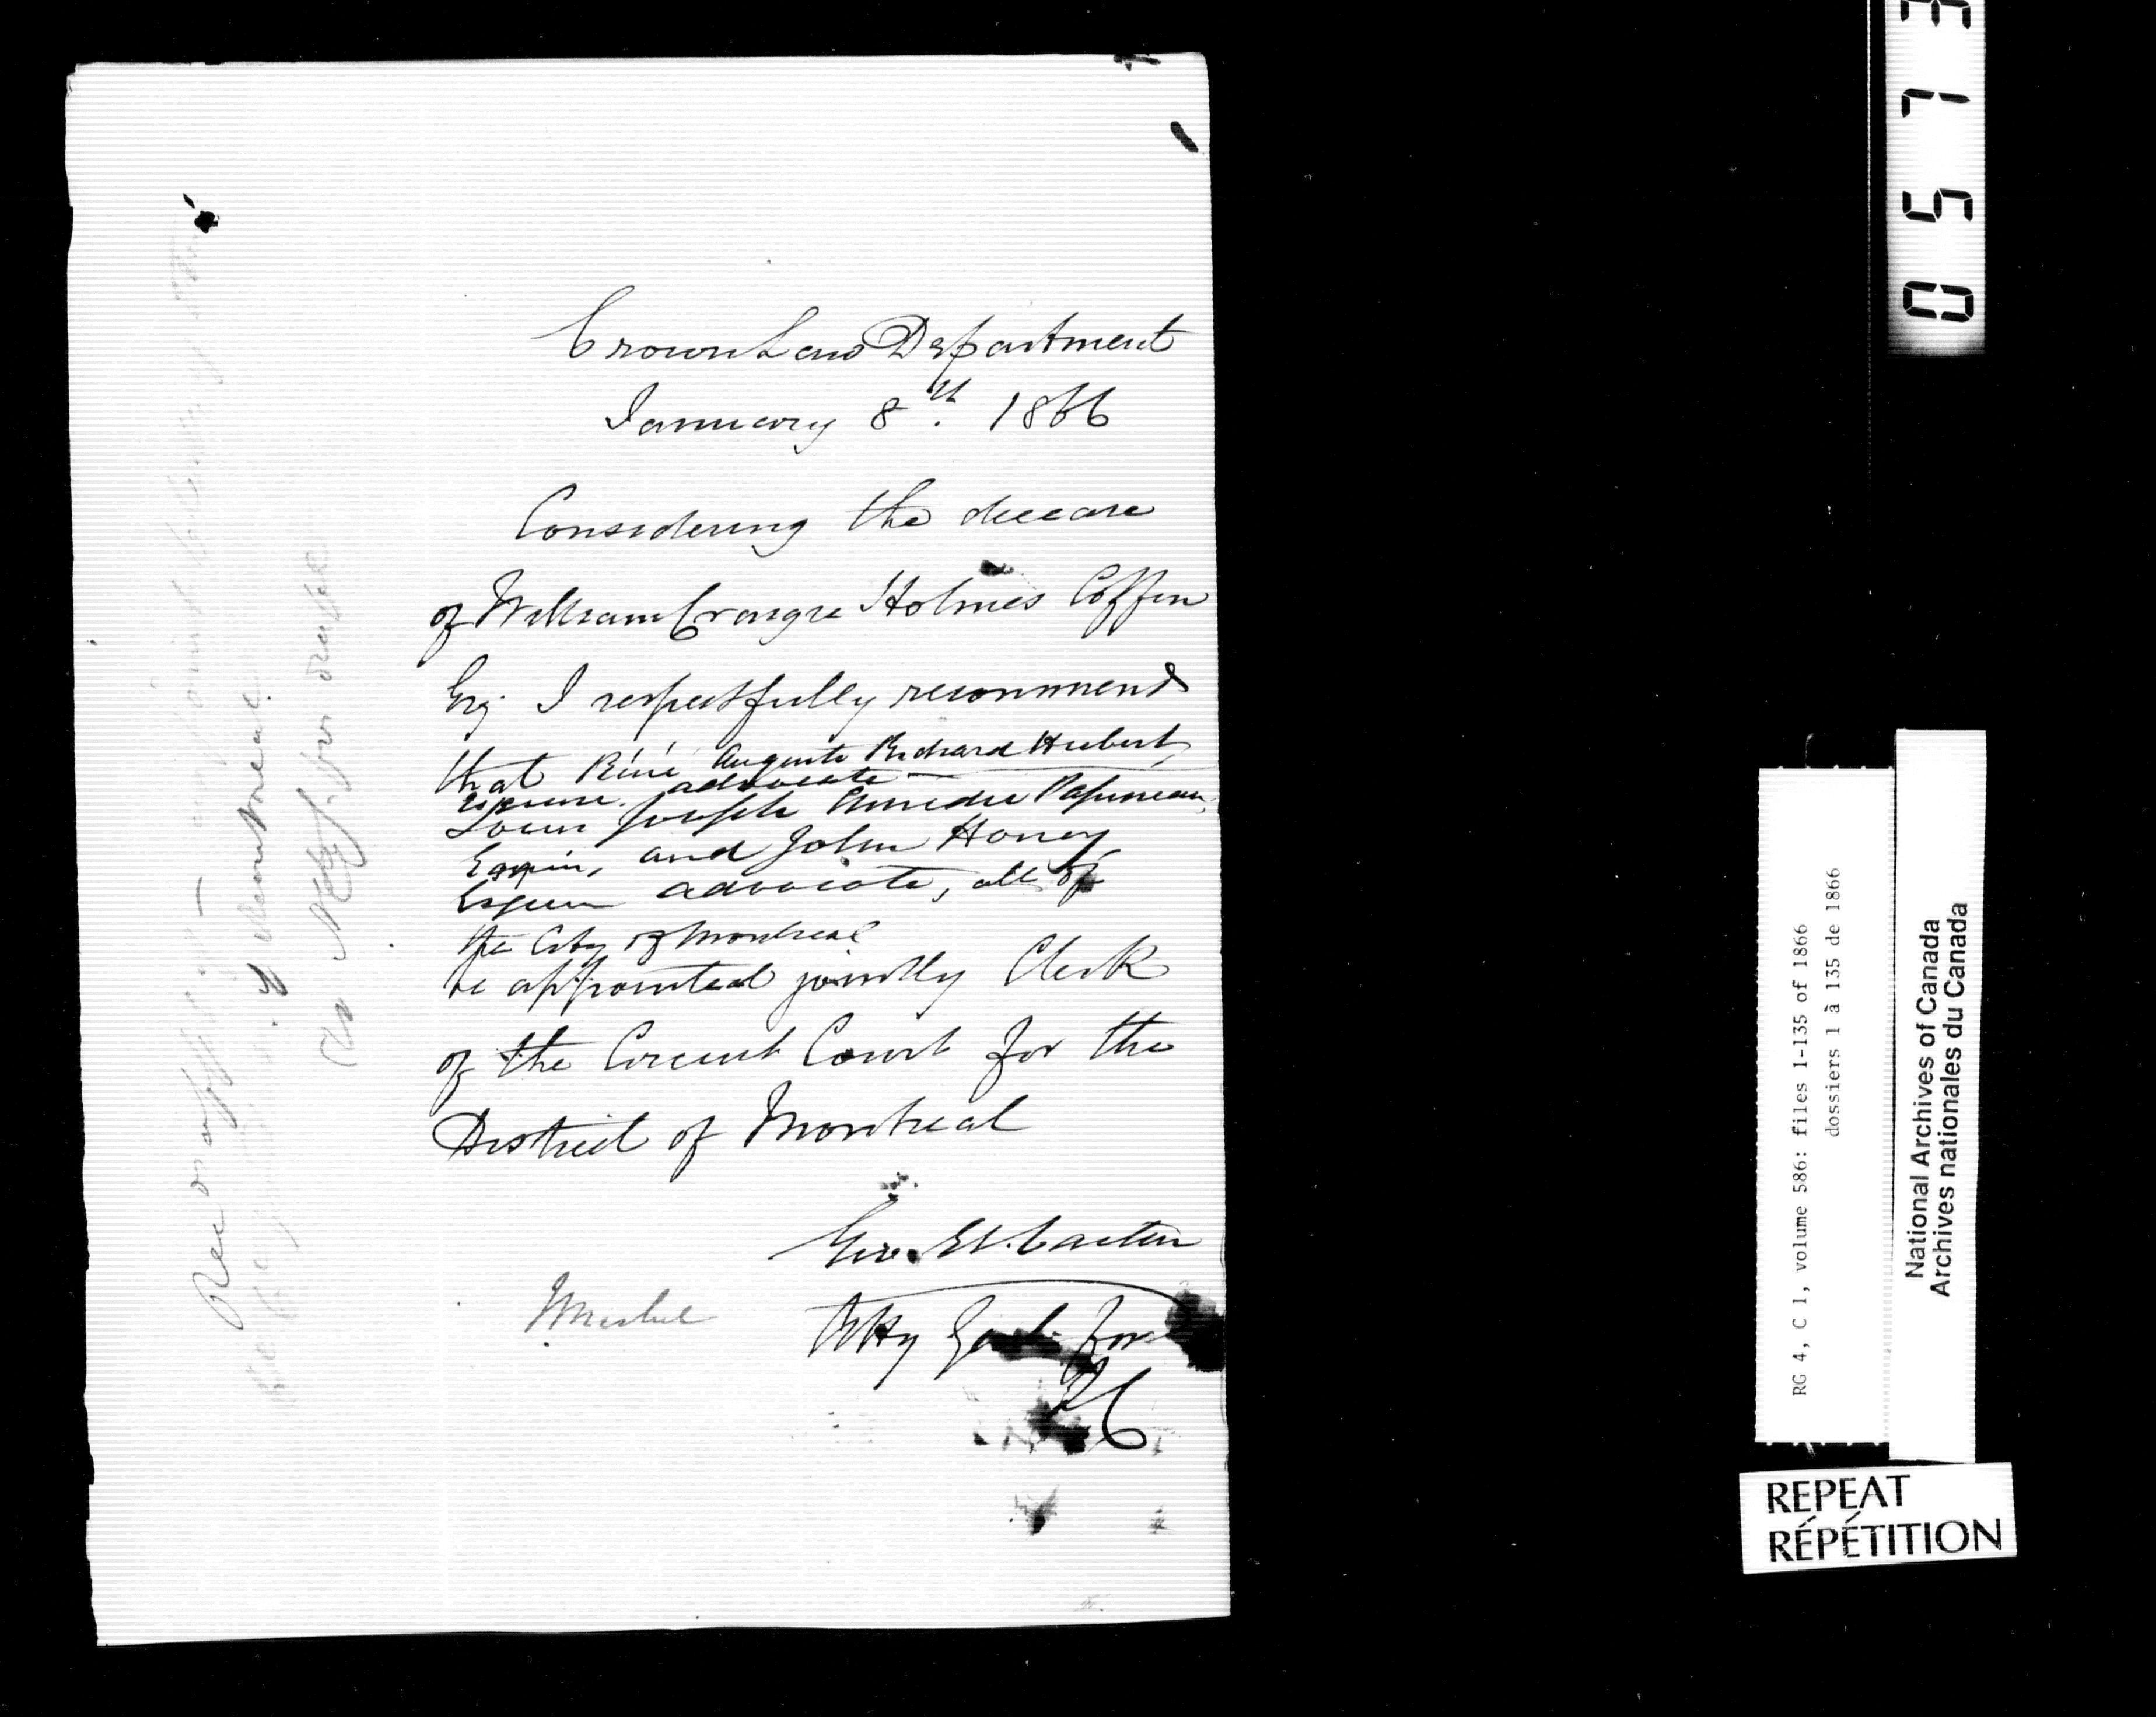 Crown Law Department
January 8th. 1866
Considering the decease
of William Craigie Holmes Coffin
Esq. I respectfully recommend
that Réné Auguste Richard Hubert,
Esquire. advocate
Louis Joseph Amedée Papineau,
Esquire, and John Honey,
Esquire advocate, all of
the City of Montreal
be appointed jointly Clerk
of the Circuit Court for the
District of Montreal
Geo. Et. Cartier
Atty Genl. for
LC
of Montreal
0 5 7 3
RG 4, C 1, volume 586: files 1-135 of 1866
dossiers 1 à 135 de 1866
National Archives of Canada
Archives nationales du Canada
REPEAT
RÉPÉTITION